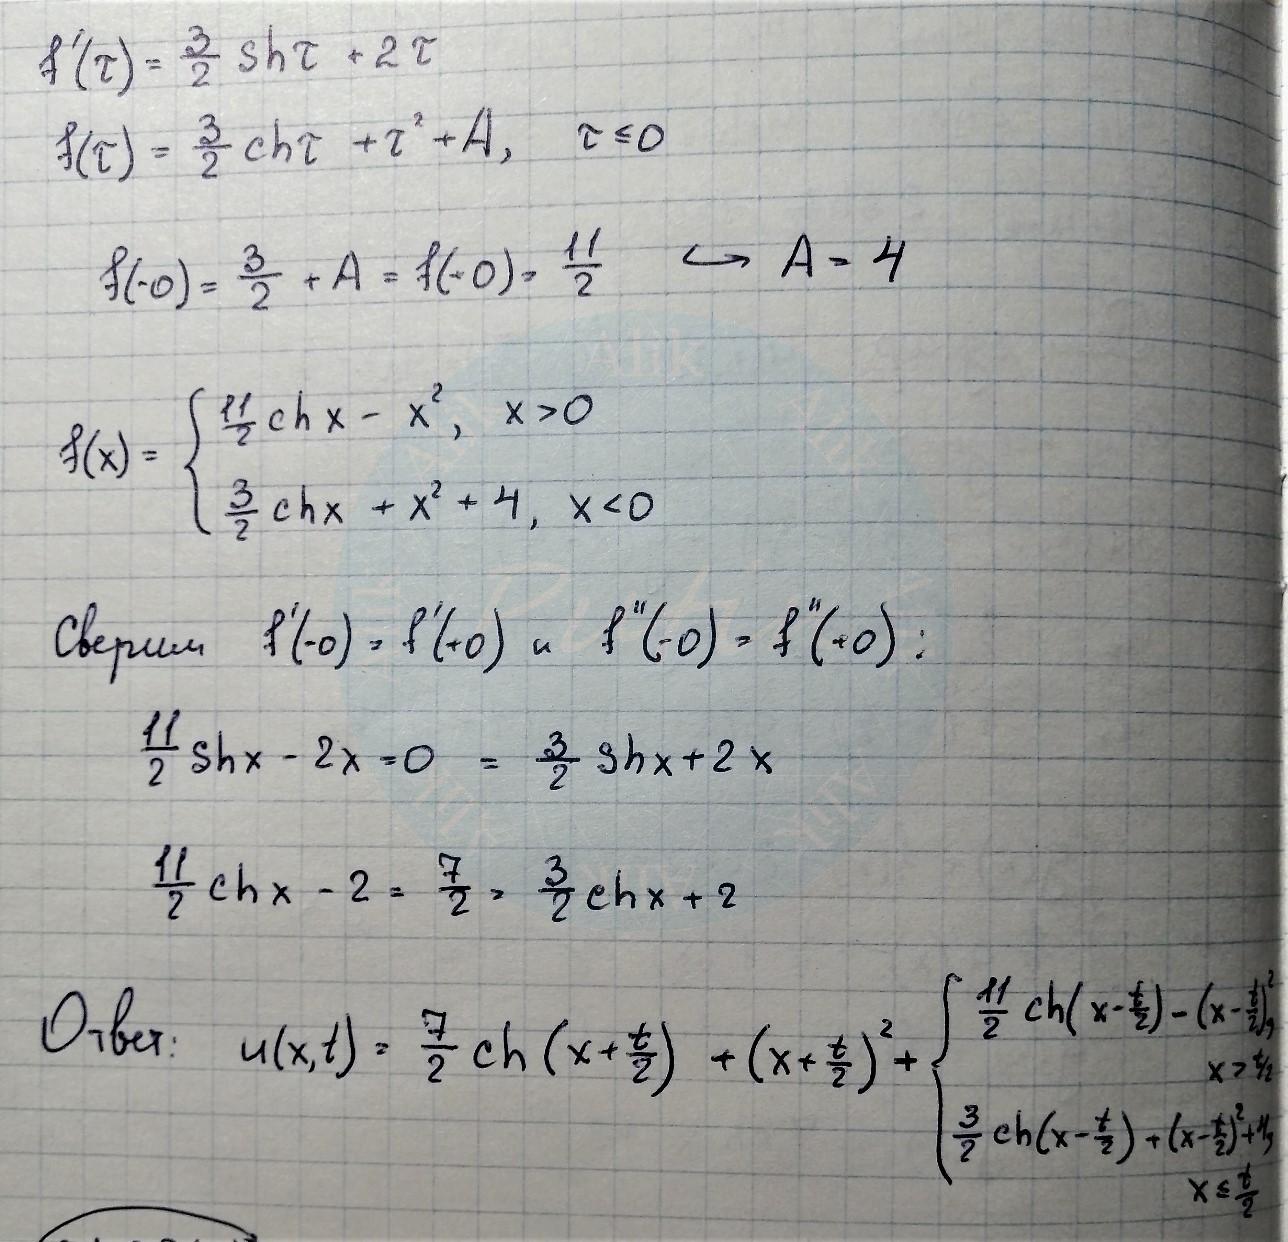 f'(τ) = 3/2 shτ + 2τ
f(τ) = 3/2 chτ + τ² + A, τ ≤ 0
f(-0) = 3/2 + A = f(+0) = 11/2 ↪ A = 4
f(x) = { 11/2 ch x - x², x > 0
3/2 chx + x² + 4, x < 0
Сверим f'(-0) = f'(+0) и f''(-0) = f''(+0) :
11/2 shx - 2x = 0 = 3/2 shx + 2x
11/2 chx - 2 = 7/2 = 3/2 chx + 2
Ответ: u(x,t) = 7/2 ch(x + t/2) + (x + t/2)² + { 11/2 ch(x - t/2) - (x - t/2)²,
x > t/2
3/2 ch(x - t/2) + (x - t/2)² + 4,
x ≤ t/2
Alik